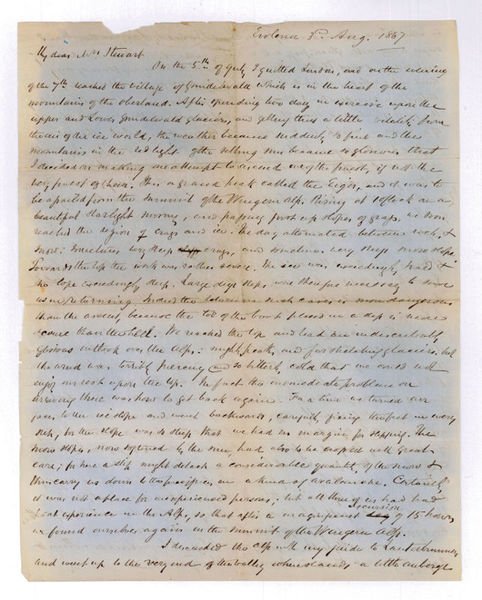 Evolena 3rd Aug. 1867
My dear Mrs Steuart
On the 5th of July I quitted London, and on the evening
of the 7th reached the village of Grindelwald which is in the heart of the
mountains of the oberland. After spending two days in exercise upon the
upper and lower Grindelwald glaciers, and getting thus a little vitality from
the air of the ice world, the weather became suddenly so fine and the
mountains in the red light of the setting sun became so glorious that
I decided on making an attempt to ascend one of the finest, if not the
very finest of them. This is a grand peak called the Eiger, and it was to
be a from the summit of the Wengern Alp. Rising at 1 o'clock on a
beautiful starlight morning, and passing first up slopes of grass, we soon
reached the region of crags and ice. The day alternated between rock &
snow: Sometimes very steep crags, and sometimes very steep snow slopes.
Towards the top the work was rather severe. The ice was exceedingly hard &
the slope exceedingly steep. Large deep steps were therefore necessary to serve
us in returning. Indeed the descent in such cases is more dangerous
than the ascent, because the toe of the boot placed in a step is more
secure than the heel. We reached the top and had an indescribably
glorious outlook over the Alps: mighty peaks, and far stretching glaciers, but
the wind was terribly piercing and so bitterly cold that we could not
enjoy our look upon the top. In fact the immediate problem on
arriving there was how to get back again. For a time we turned our
faces to the ice slope and went backwards, carefully fixing the feet in every
step, for the slope was so steep that we had no margin for slipping. The
snow slopes, now softened by the sun, had also to be crossed with great
care, for here a slip might detach a considerable quantity of the snow &
thus carry us down the precipices on a kind of avalanche. Certainly
it was not a place for inexperienced persons; but all three of us had had
great experience in the Alps, so that after a magnificent excursion of 15 hours
we found ourselves again on the summit of the Wengern Alp.
I descended the Alp with my guide to Lauterbrunnen
and went up to the very end of the valley where stands a little auberge